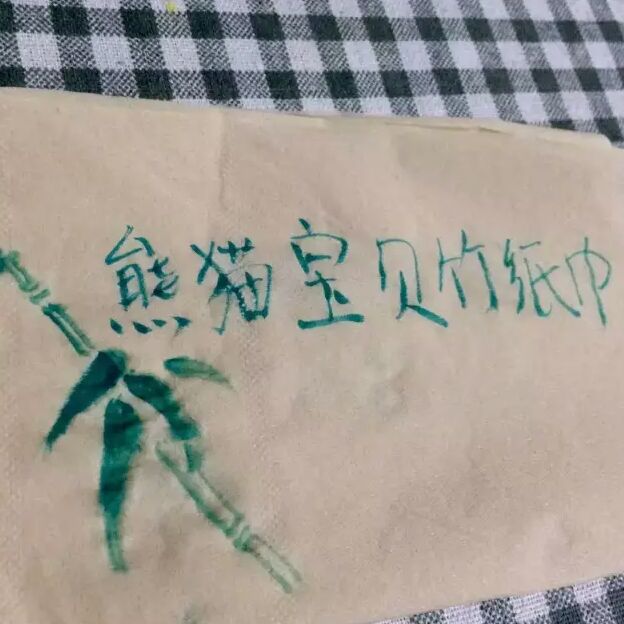 熊猫宝贝竹纸巾